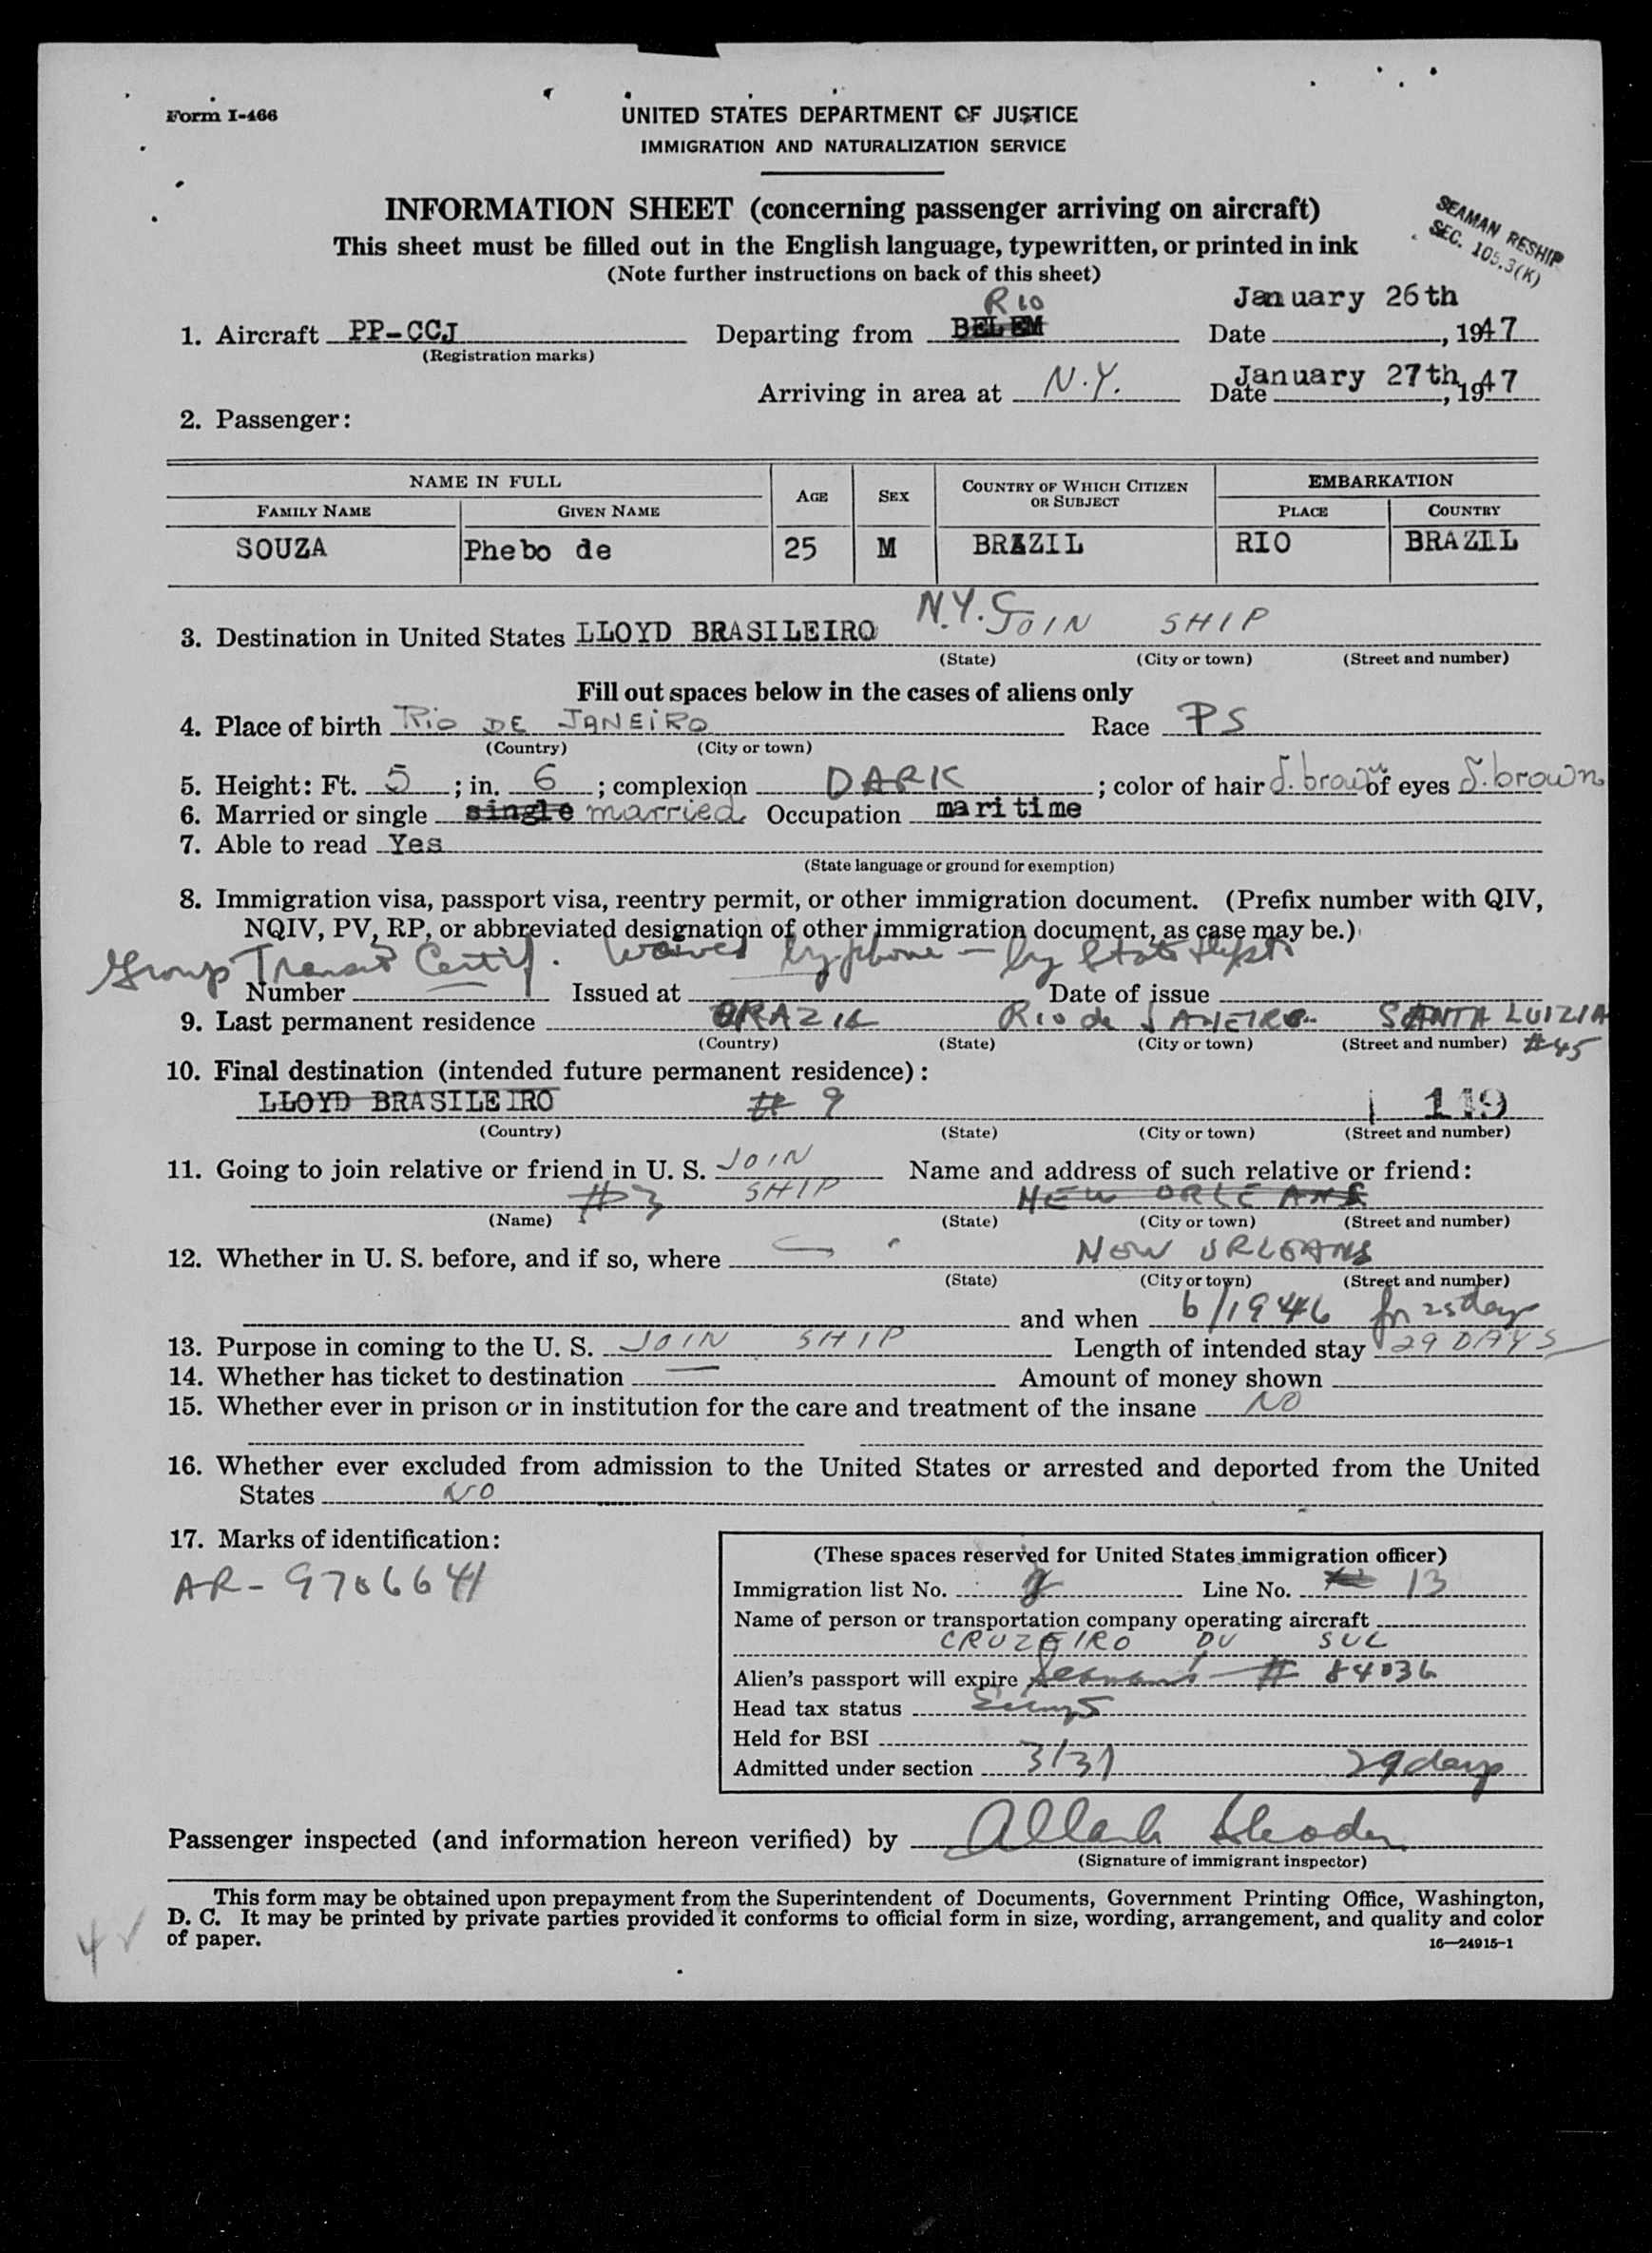 Form I-466
UNITED STATES DEPARTMENT OF JUSTICE
IMMIGRATION AND NATURALIZATION SERVICE
INFORMATION SHEET (concerning passenger arriving on aircraft)
This sheet must be filled out in the English language, typewritten, or printed in ink
(Note further instructions on back of this sheet)
SEAMAN RESHIP
SEC. 105.3(K)
1. Aircraft PP-CCJ Departing from BELEM Rio Date January 26th, 1947
(Registration marks)
Arriving in area at N.Y. Date January 27th, 1947
2. Passenger:
NAME IN FULL AGE SEX COUNTRY OF WHICH CITIZEN OR SUBJECT EMBARKATION
FAMILY NAME GIVEN NAME PLACE COUNTRY
SOUZA Phebo de 25 M BRAZIL RIO BRAZIL
3. Destination in United States LLOYD BRASILEIRO N.Y. JOIN SHIP
(State) (City or town) (Street and number)
Fill out spaces below in the cases of aliens only
4. Place of birth Rio DE JANEIRO Race PS
(Country) (City or town)
5. Height: Ft. 5; in. 6; complexion DARK; color of hair d. brown of eyes d. brown
6. Married or single single married Occupation maritime
7. Able to read Yes
(State language or ground for exemption)
8. Immigration visa, passport visa, reentry permit, or other immigration document. (Prefix number with QIV,
NQIV, PV, RP, or abbreviated designation of other immigration document, as case may be.)
Group Transit Certif. Waived by phone - by State Dept.
Number Issued at Date of issue
9. Last permanent residence BRAZIL Rio de JANEIRO SANTA LUIZIA #45
(Country) (State) (City or town) (Street and number)
10. Final destination (intended future permanent residence):
LLOYD BRASILEIRO # 9 119
(Country) (State) (City or town) (Street and number)
11. Going to join relative or friend in U. S. JOIN SHIP Name and address of such relative or friend:
#3 NEW ORLEANS
(Name) (State) (City or town) (Street and number)
12. Whether in U. S. before, and if so, where NEW ORLEANS
(State) (City or town) (Street and number)
and when 6/1946 for 25 days
13. Purpose in coming to the U. S. JOIN SHIP Length of intended stay 29 DAYS
14. Whether has ticket to destination — Amount of money shown
15. Whether ever in prison or in institution for the care and treatment of the insane NO
16. Whether ever excluded from admission to the United States or arrested and deported from the United
States NO
17. Marks of identification:
AR-9706641
(These spaces reserved for United States immigration officer)
Immigration list No. Line No. 13
Name of person or transportation company operating aircraft
CRUZEIRO DU SUL
Alien's passport will expire Seaman's # 84036
Head tax status
Held for BSI
Admitted under section 3/31 29 days
Passenger inspected (and information hereon verified) by
(Signature of immigrant inspector)
This form may be obtained upon prepayment from the Superintendent of Documents, Government Printing Office, Washington,
D. C. It may be printed by private parties provided it conforms to official form in size, wording, arrangement, and quality and color
of paper.
16—24915-1